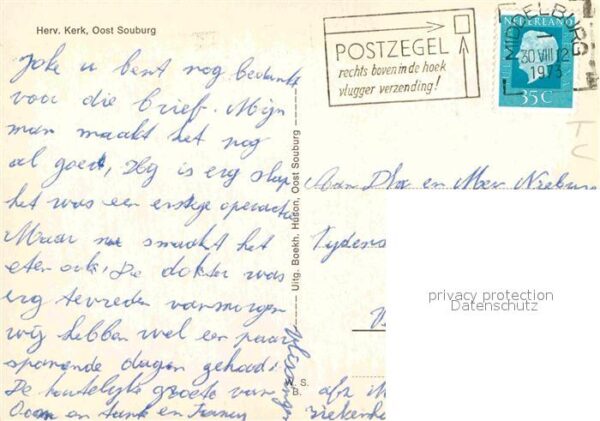 Herv. Kerk, Oost Souburg
Joke u bent nog bedankt
voor die brief. Mijn
man maakt het nog
al goed, Hij is erg slap
het was een enstige operatie
Maar nu smaakt het
eten ook. De dokter was
erg tevreden vanmorgen
wij hebben wel een paar
spanende dagen gehad!
De hartelijke groete van
Oom en tante en
Vlissingen
Uitg. Boekh. Huson, Oost Souburg
W. S.
B.
POSTZEGEL
rechts boven in de hoek
vlugger verzending!
MIDDELBURG
30 VIII 12
1973
NEDERLAND
35C
T
C
Aan Dhr en Mevr
privacy protection
Datenschutz
afz